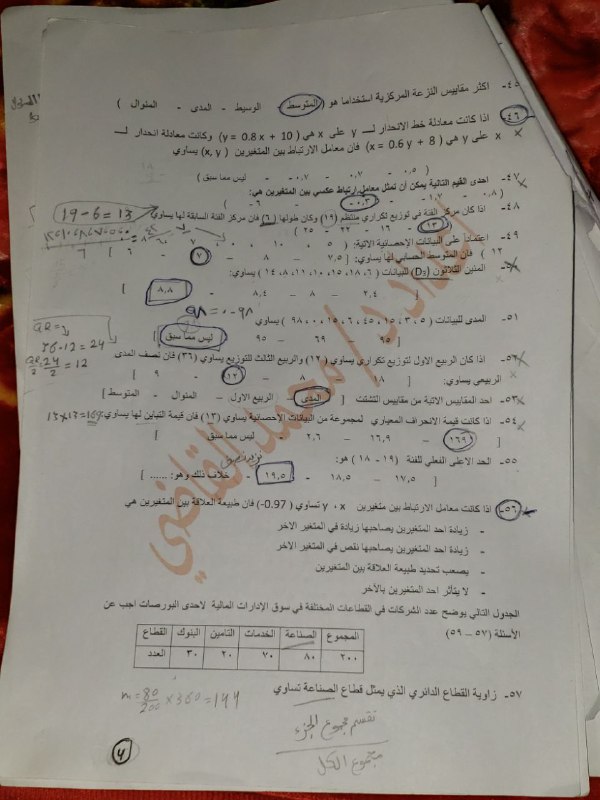 ٤٥- اكثر مقاييس النزعة المركزية استخداما هو ( المتوسط - الوسيط - المدى - المنوال )
٤٦- اذا كانت معادلة خط الانحدار لـــ y على x هي (y = 0.8 x + 10) وكانت معادلة انحدار لـــ
x على y هي (x = 0.6 y + 8) فان معامل الارتباط بين المتغيرين (x, y) يساوي
٠,٥ - ٠,٧ - ٠,٧- - ليس مما سبق )
٤٧- احدى القيم التالية يمكن أن تمثل معامل ارتباط عكسي بين المتغيرين هي:
( ٠,٨ - ١,٧- - ٠,٣- - ٦- )
٤٨- اذا كان مركز الفئة في توزيع تكراري منتظم (١٩) وكان طولها (٦) فان مركز الفئة السابقة لها يساوي
19 - 6 = 13
( ١٣ - ١٦ - ٢٢ - ٢٥ )
٤٩- اعتمادا على البيانات الإحصائية الاتية:
١٢ ) فان المتوسط الحسابي لها يساوي: [ ٧,٥ - ٨ - ٧
المئين الثلاثون (D₃) للبيانات ( ٦, ١٨, ١٥, ١٠, ١١, ٨, ١٤) يساوي:
[ ٢,٤ - ٨ - ٨,٤ - ٨,٨ ]
٩٨ = ٠ - ٩٨
٥١- المدى للبيانات ( ٥, ٣, ١٥, ٤٥, ٦, ١٥, ٠, ٩٨) يساوي
[ ٩٥ - ٦٩ - ٩٥ - ليس مما سبق ]
٥٢- اذا كان الربيع الاول لتوزيع تكراري يساوي (١٢) والربيع الثالث للتوزيع يساوي (٣٦) فان نصف المدى
36 - 12 = 24
الربيعي يساوي: [ ١٨ - ٨ - ١٢ - ٩ ]
24/2 = 12
٥٣- احد المقاييس الاتية من مقاييس التشتت [ المدى - الربيع الاول - المنوال - المتوسط ]
٥٤- اذا كانت قيمة الانحراف المعياري لمجموعة من البيانات الإحصائية يساوي (١٣) فان قيمة التباين لها يساوي:
13 × 13 = 169
[ ١٦٩ - ١٦,٩ - ٢,٦ - ليس مما سبق
٥٥- الحد الاعلى الفعلي للفئة (١٨ - ١٩) هو:
[ ١٧,٥ - ١٨,٥ - ١٩,٥ - خلاف ذلك وهو: ...... ]
٥٦- اذا كانت معامل الارتباط بين متغيرين x ، y تساوي (-0.97) فان طبيعة العلاقة بين المتغيرين هي
- زيادة احد المتغيرين يصاحبها زيادة في المتغير الاخر
- زيادة احد المتغيرين يصاحبها نقص في المتغير الاخر
- يصعب تحديد طبيعة العلاقة بين المتغيرين
- لا يتأثر احد المتغيرين بالآخر
الجدول التالي يوضح عدد الشركات في القطاعات المختلفة في سوق الإدارات المالية لاحدى البورصات اجب عن
الأسئلة (٥٧ – ٥٩)
القطاع البنوك التامين الخدمات الصناعة المجموع
العدد ٣٠ ٢٠ ٧٠ ٨٠ ٢٠٠
٥٧- زاوية القطاع الدائري الذي يمثل قطاع الصناعة تساوي
m = 80/200 × 360 = 144
نقسم مجموع الجزء
مجموع الكل
٤